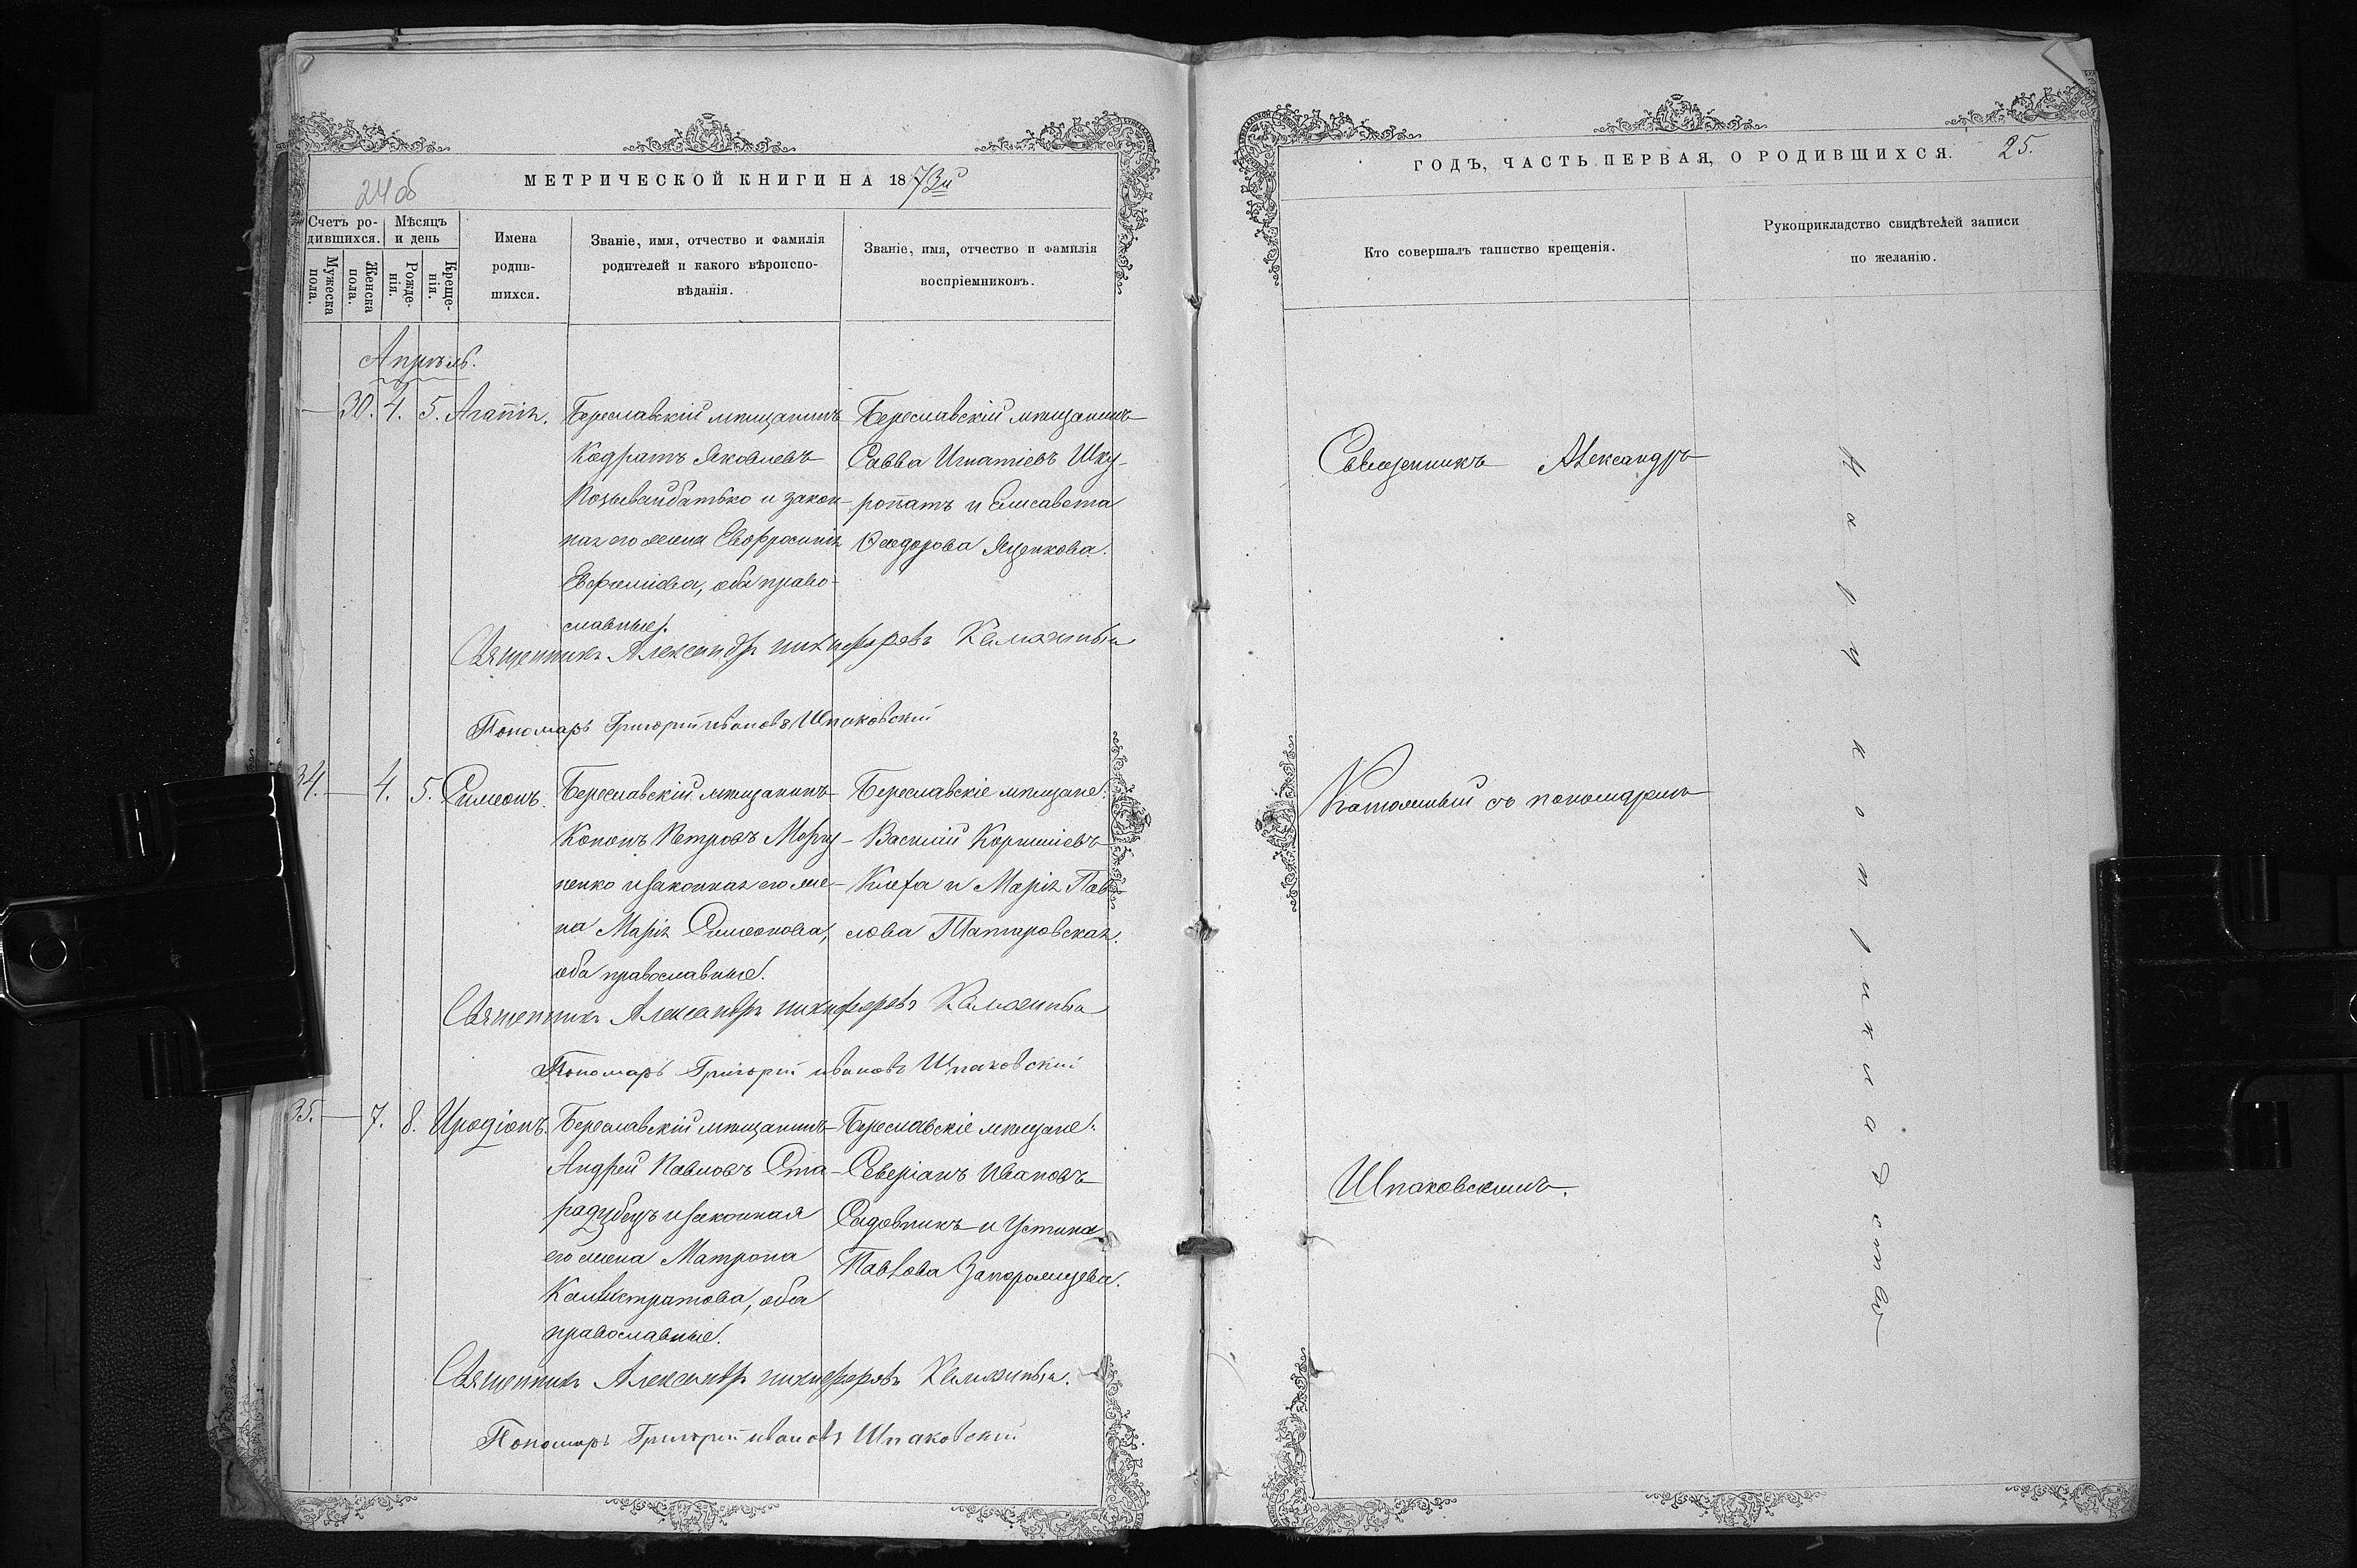 24 об
МЕТРИЧЕСКОЙ КНИГИ НА 1873й
Счетъ ро-
дившихся.
Мѣсяцъ
и день
Мужеска
пола.
Женска
пола.
Рожде-
нія.
Креще-
нія.
Имена
родив-
шихся.
Званіе, имя, отчество и фамилія
родителей и какого вѣроиспо-
вѣданія.
Званіе, имя, отчество и фамилія
воспріемниковъ.
Апрѣль.
— 30. 4. 5. Агапія.
Береславскій мѣщанинъ
Кодратъ Яковлевъ
Позывайбатько и закон-
ная его жена Евфросинія
Евфиміева, оба право-
славные.
Береславскій мѣщанинъ
Савва Игнатіевъ Шку-
ропатъ и Елисавета
Ѳеодорова Яценкова.
Священникъ Александръ Никифоровъ
Пономарь Григорій Ивановъ Шпаковскій
34. — 4. 5. Симеонъ.
Береславскій мѣщанинъ
Кононъ Петровъ Моргу-
ненко и законная его же-
на Марія Симеонова,
оба православные.
Береславскіе мѣщане:
Василій Корниліевъ
и Марія Пав-
лова Татаровская.
Священникъ Александръ Никифоровъ
Пономарь Григорій Ивановъ Шпаковскій
35. — 7. 8. Иродіонъ.
Береславскій мѣщанинъ
Андрей Павловъ Ста-
радубецъ и законная
его жена Матрона
Каллистратова, оба
православные.
Береславскіе мѣщане:
Северіанъ Ивановъ
Садовникъ и Устина
Павлова Запорожцева.
Священникъ Александръ Никифоровъ
Пономарь Григорій Ивановъ Шпаковскій
ГОДЪ, ЧАСТЬ ПЕРВАЯ, О РОДИВШИХСЯ. 25.
Кто совершалъ таинство крещенія.
Рукоприкладство свидѣтелей записи
по желанію.
Священникъ Александръ
съ пономаремъ
Шпаковскимъ.